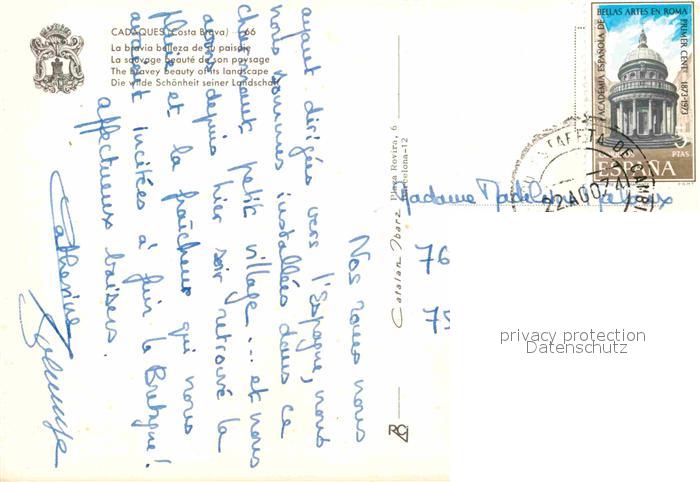 CADAQUES (Costa Brava) 66
La bravia belleza de su paisaje
La sauvage beauté de son paysage
The bravey beauty of its landscape
Die wilde Schönheit seiner Landschaft
Nos roues nous
ayant dirigées vers l'Espagne, nous
nous sommes installées dans ce
charmant petit village... et nous
avons depuis hier soir retrouvé la
pluie et la fraîcheur qui nous
avaient incitées à fuir la Bretagne!
affectueux baisers.
Catherine
Catalan Ibarz Plaza Rovira, 6
Barcelona-12
ACADEMIA ESPAÑOLA DE BELLAS ARTES EN ROMA
PRIMER CENT. 1873-1973
5
PTAS
ESPAÑA
ESTAFETA DE CAMBI
22 AGO 74
Madame
76
75
privacy protection
Datenschutz